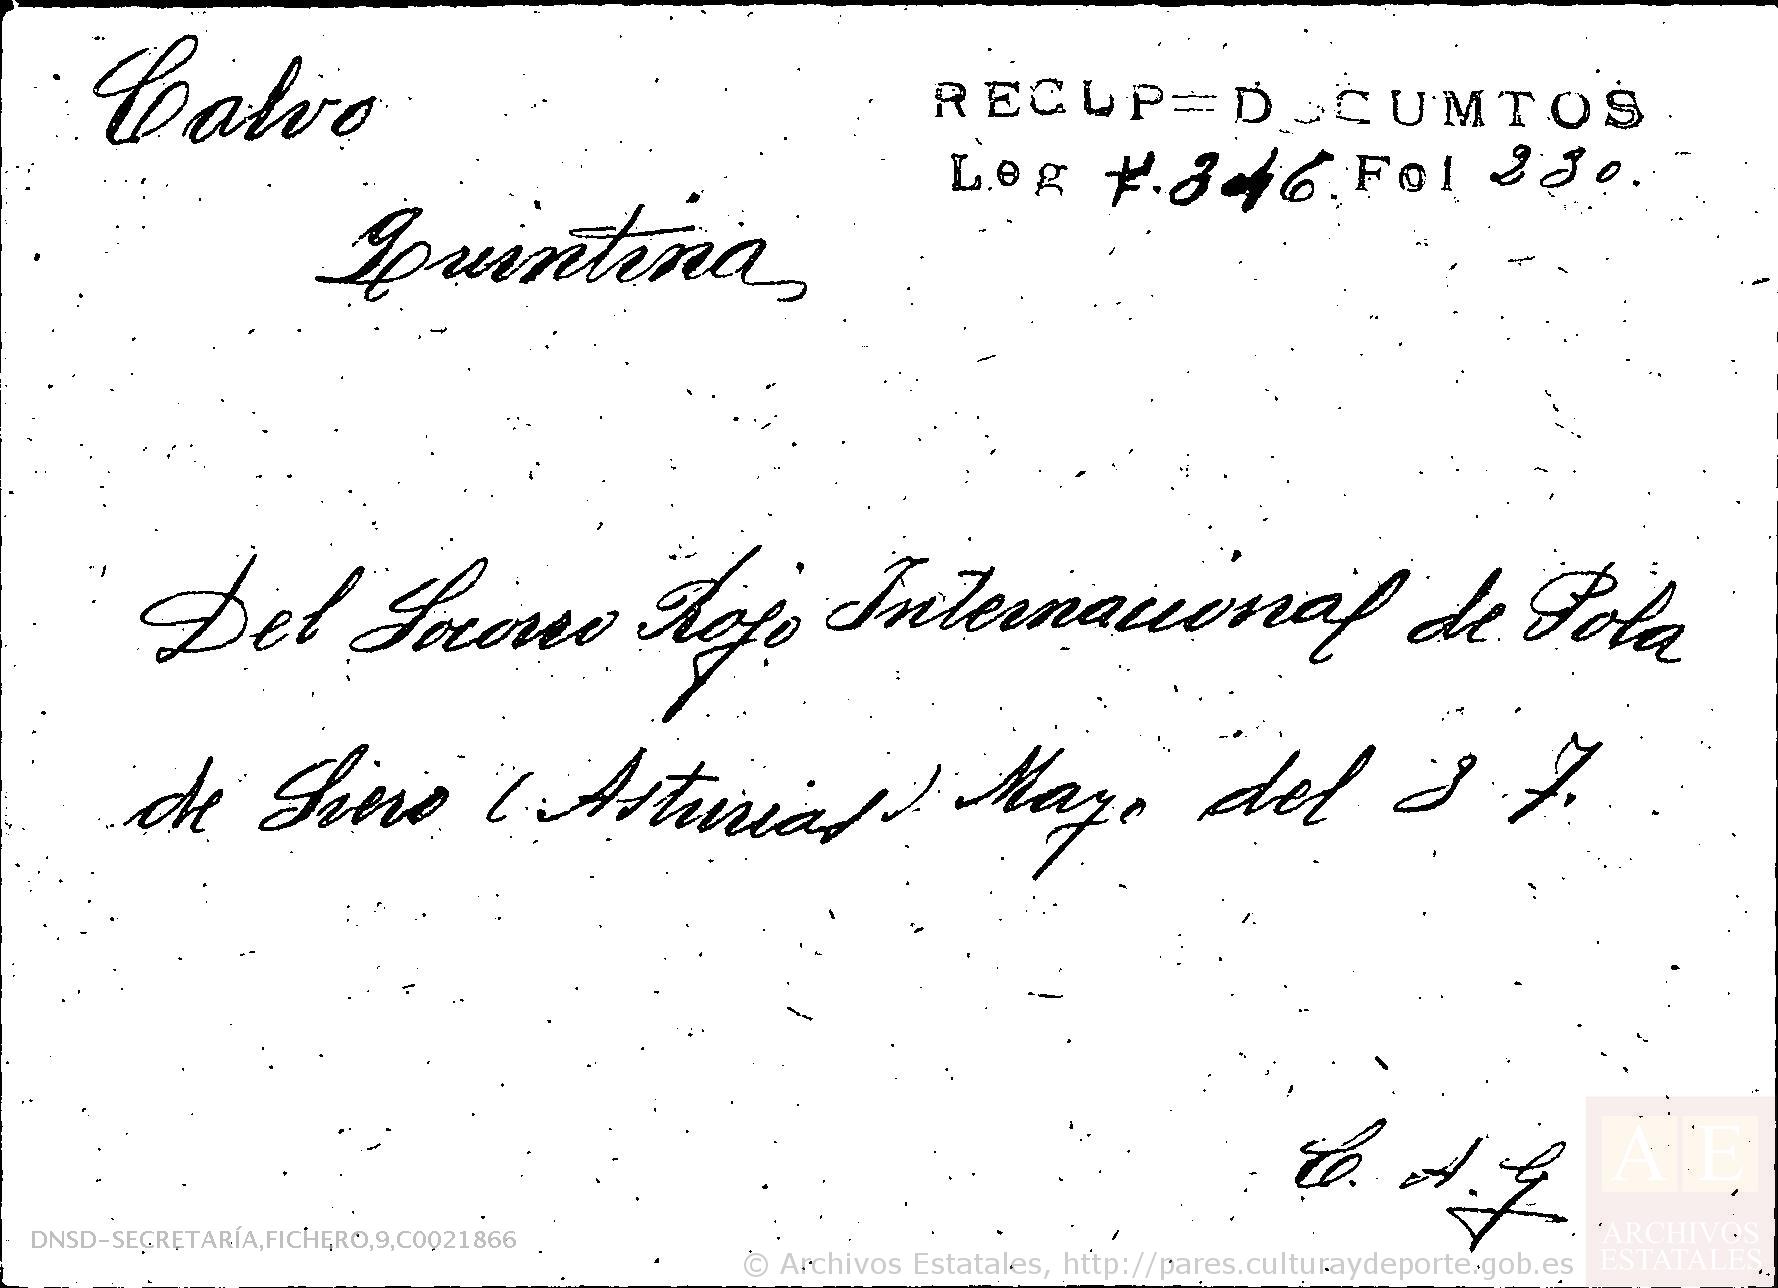 Calvo
RECUP=DOCUMTOS
Leg F. 346. Fol 230.
Quintina
Del Socorro Rojo Internacional de Pola
de Siero (Asturias) Mayo del 37.
C. A. G
DNSD-SECRETARÍA,FICHERO,9,C0021866
© Archivos Estatales, http://pares.culturaydeporte.gob.es
AE
ARCHIVOS
ESTATALES